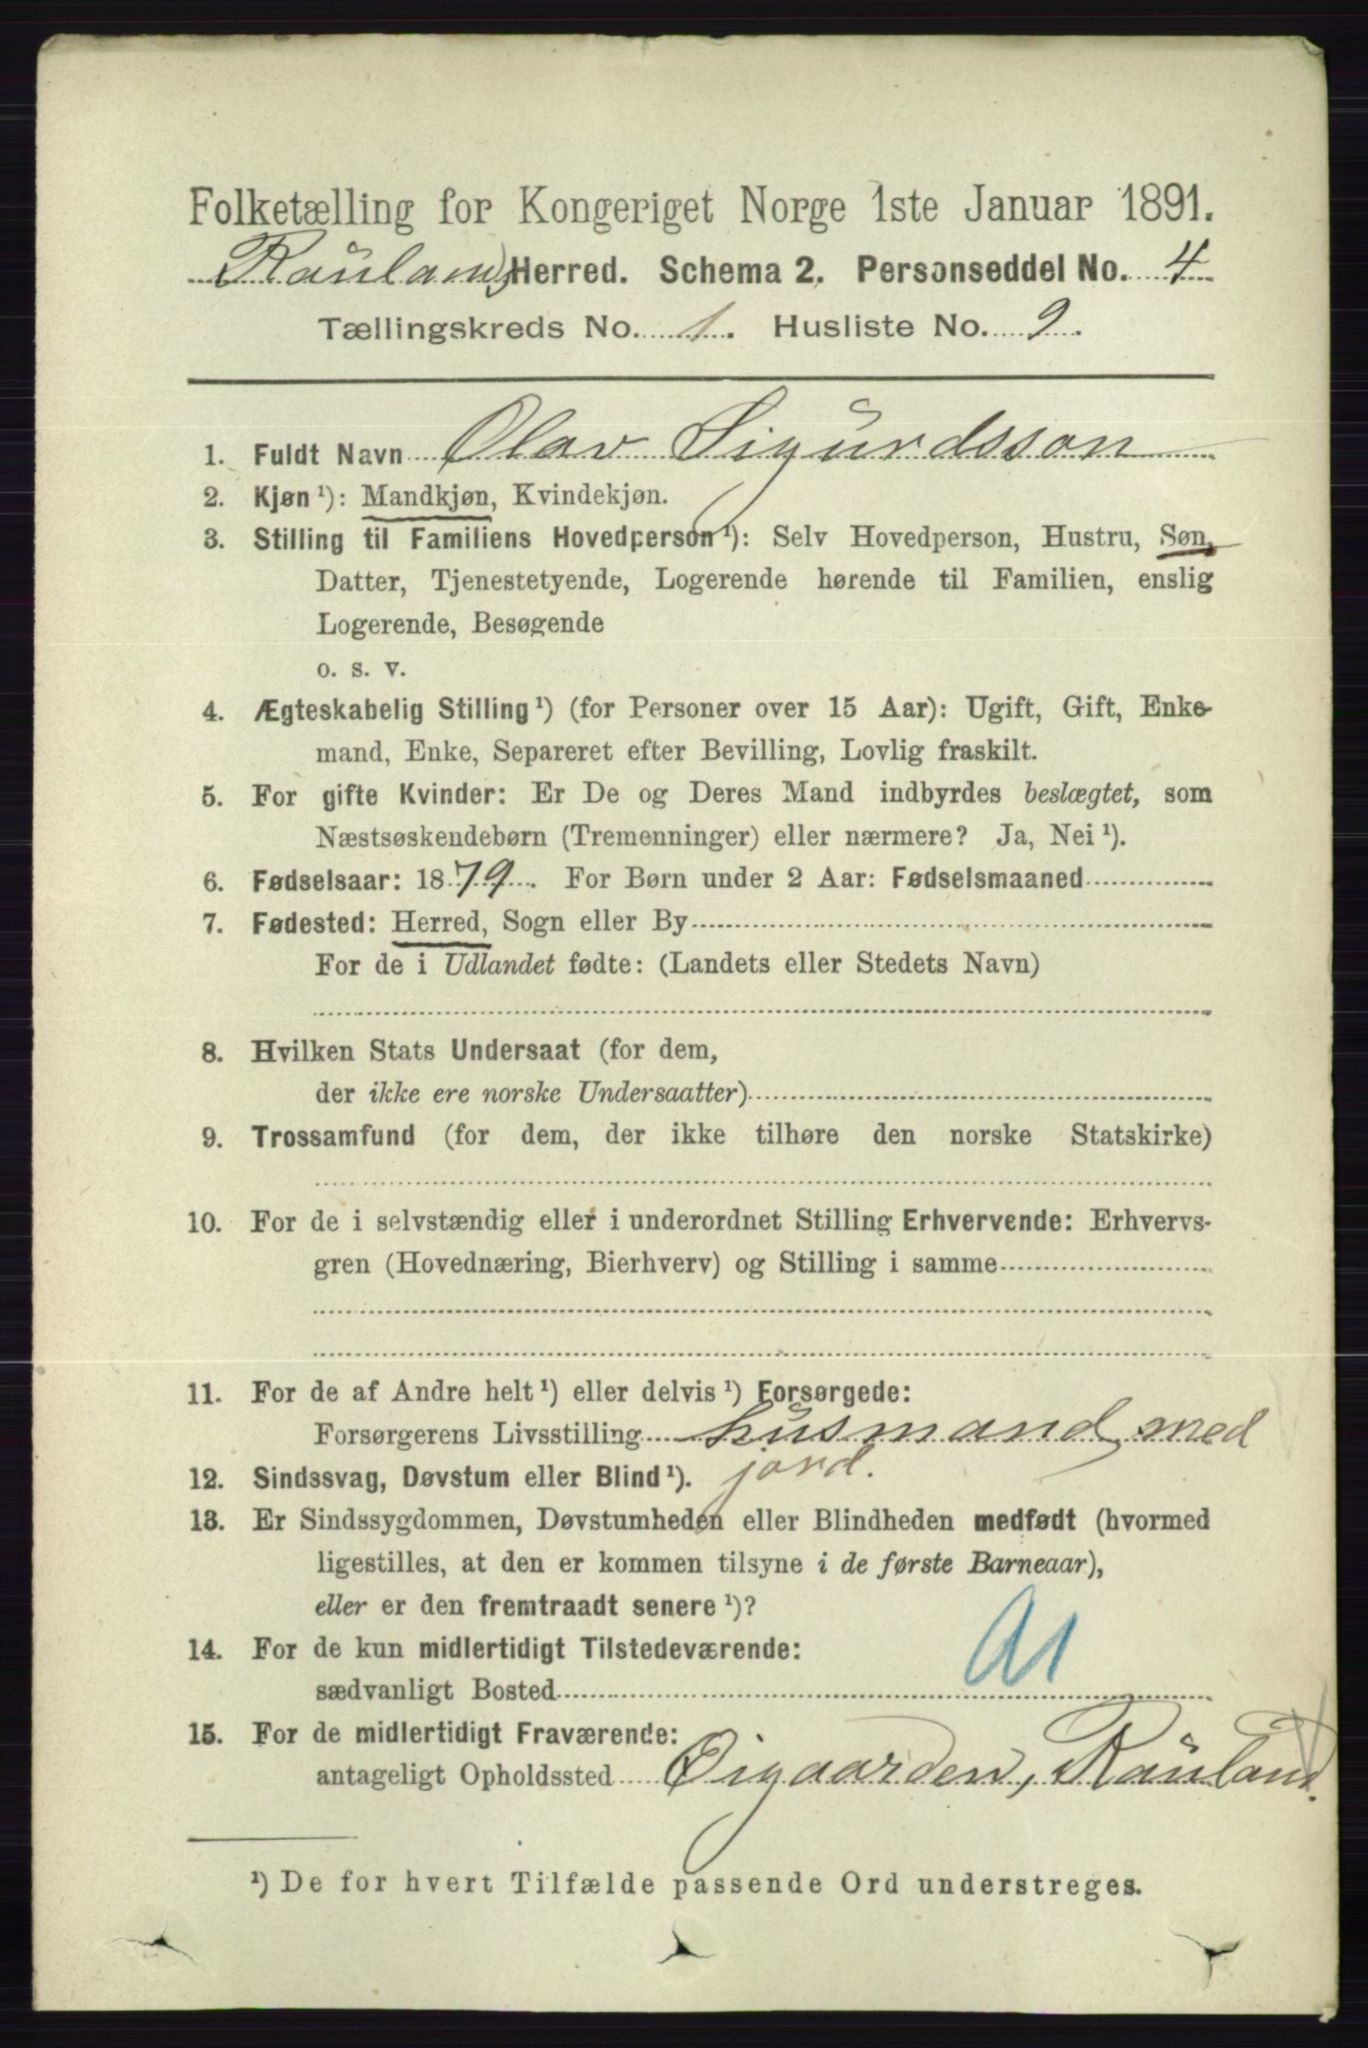 Folketælling for Kongeriget Norge 1ste Januar 1891.
Raulands Herred. Schema 2. Personseddel No. 4
Tællingskreds No. 1. Husliste No. 9.
1. Fuldt Navn Olav Sigurdsson
2. Kjøn ¹): Mandkjøn, Kvindekjøn.
3. Stilling til Familiens Hovedperson ¹): Selv Hovedperson, Hustru, Søn,
Datter, Tjenestetyende, Logerende hørende til Familien, enslig
Logerende, Besøgende
o. s. v.
4. Ægteskabelig Stilling ¹) (for Personer over 15 Aar): Ugift, Gift, Enke-
mand, Enke, Separeret efter Bevilling, Lovlig fraskilt.
5. For gifte Kvinder: Er De og Deres Mand indbyrdes beslægtet, som
Næstsøskendebørn (Tremenninger) eller nærmere? Ja, Nei ¹).
6. Fødselsaar: 1879. For Børn under 2 Aar: Fødselsmaaned
7. Fødested: Herred, Sogn eller By
For de i Udlandet fødte: (Landets eller Stedets Navn)
8. Hvilken Stats Undersaat (for dem,
der ikke ere norske Undersaatter)
9. Trossamfund (for dem, der ikke tilhøre den norske Statskirke)
10. For de i selvstændig eller i underordnet Stilling Erhvervende: Erhvervs-
gren (Hovednæring, Bierhverv) og Stilling i samme
11. For de af Andre helt ¹) eller delvis ¹) Forsørgede:
Forsørgerens Livsstilling husmand med
12. Sindssvag, Døvstum eller Blind ¹). jord.
13. Er Sindssygdommen, Døvstumheden eller Blindheden medfødt (hvormed
ligestilles, at den er kommen tilsyne i de første Barneaar),
eller er den fremtraadt senere ¹)?
14. For de kun midlertidigt Tilstedeværende:
sædvanligt Bosted
15. For de midlertidigt Fraværende:
antageligt Opholdssted Øigaarden, Rauland.
¹) De for hvert Tilfælde passende Ord understreges.